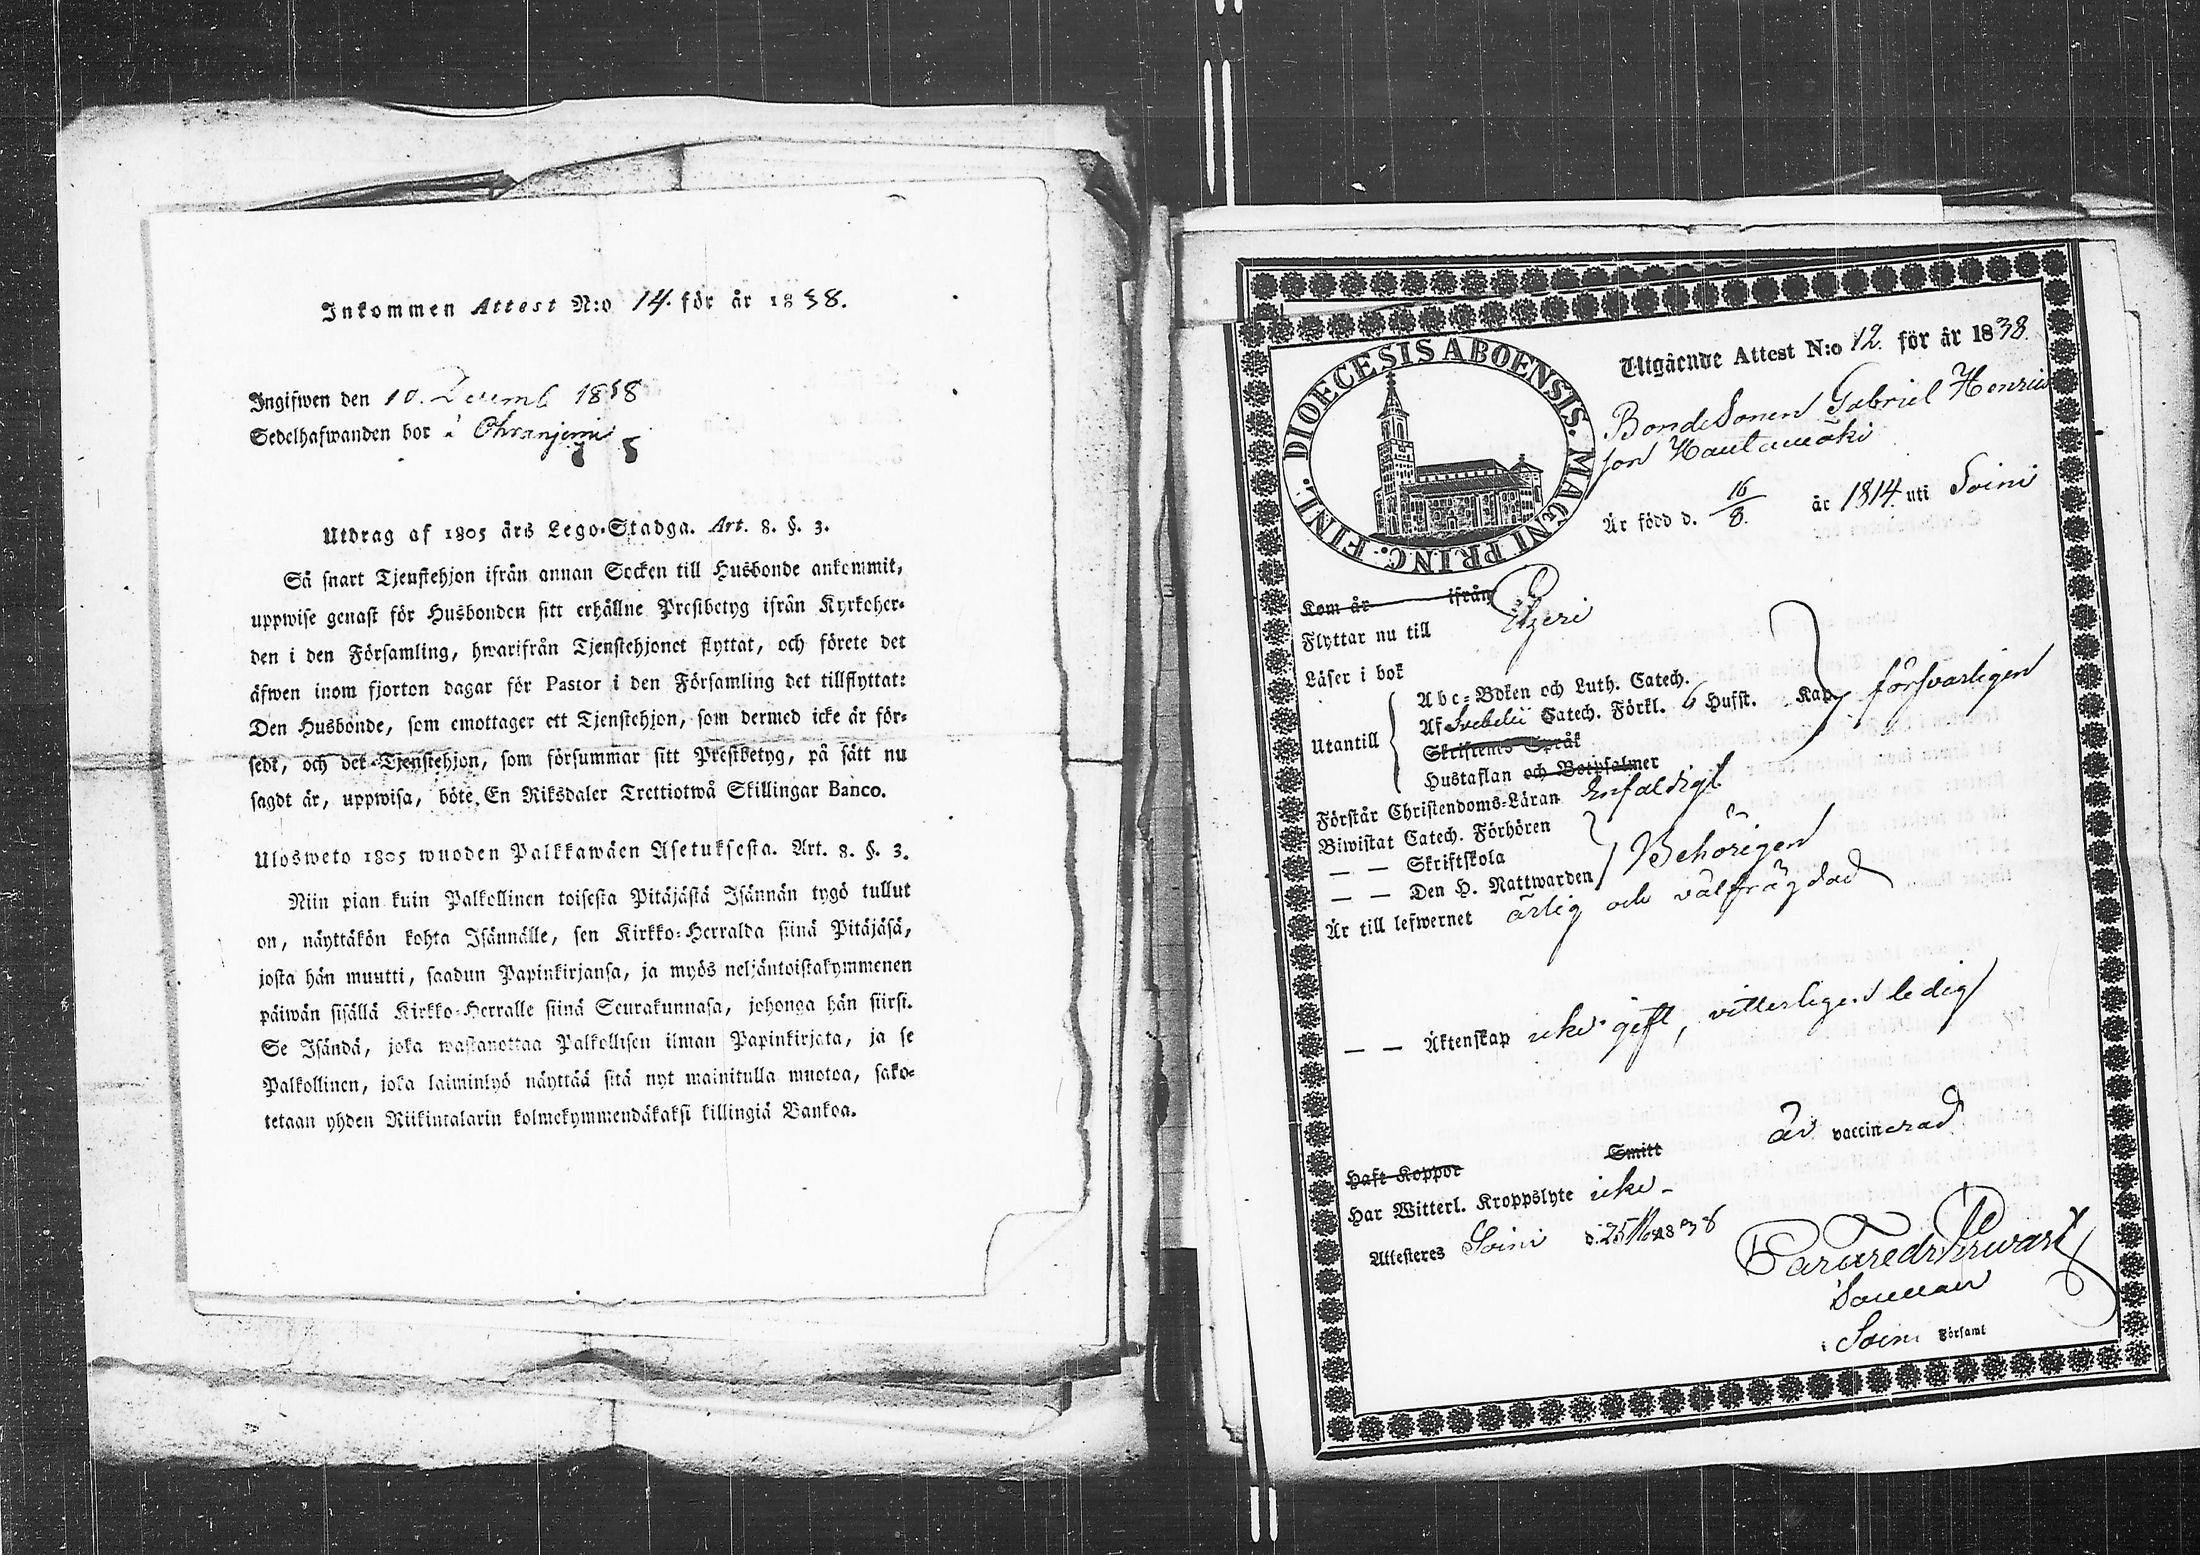 Inkommen Attest N:o 14. för år 1838.
Ingifwen den 10. Decemb 1838
Sedelhafwanden bor i
Utdrag af 1805 års Lego-Stadga. Art. 8. §. 3.
Så snart Tjenstehjon ifrån annan Socken till Husbonde ankommit,
uppwise genast för Husbonden sitt erhållne Prestbetyg ifrån Kyrkoher-
den i den Församling, hwarifrån Tjenstehjonet flyttat, och förete det
äfwen inom fjorton dagar för Pastor i den Församling det tillflyttat:
Den Husbonde, som emottager ett Tjenstehjon, som dermed icke är för-
sedt, och det Tjenstehjon, som försummar sitt Prestbetyg, på sätt nu
sagdt är, uppwisa, böte En Riksdaler Trettiotwå Skillingar Banco.
Ulosweto 1805 wuoden Palkkawäen Asetuksesta. Art. 8. §. 3.
Niin pian kuin Palkollinen toisesta Pitäjästä Isännän tygö tullut
on, näyttäkön kohta Isännälle, sen Kirkko-Herralda siinä Pitäjäsä,
josta hän muutti, saadun Papinkirjansa, ja myös neljäntoistakymmenen
päiwän sisällä Kirkko-Herralle siinä Seurakunnasa, johonga hän siirsi.
Se Isändä, joka wastanottaa Palkollisen ilman Papinkirjata, ja se
Palkollinen, joka laiminlyö näyttää sitä nyt mainitulla muotoa, sako-
tetaan yhden Riikintalarin kolmekymmendäkaksi killingiä Bankoa.
DIOECESIS ABOENSIS. MAGNI PRINC. FINL.
Utgående Attest N:o 12. för år 1838.
Bondesonen Gabriel Henriks
son Hautamäki
Är född d. 16/8. år 1814. uti Soini
Kom år ifrån
Flyttar nu till Etzeri
Läser i bok
Abc-Boken och Luth. Catech.
Utantill Af Svebelii Catech. Förkl. 6 Hufst. Kap försvarligen
Skriftens Språk
Hustaflan och Botpsalmer
Förstår Christendoms-Läran enfaldigt
Biwistat Catech. Förhören
— — Skriftskola Behörigen
— — Den H. Nattwarden
Är till lefwernet ärlig och välfrägdad
— — Äktenskap icke gift, vitterligen ledig
är vaccinerad
Haft Koppor Smitt
Har Witterl. Kroppslyte icke
Attesteras Soini d. 25 Nov 1838
Soini Församl